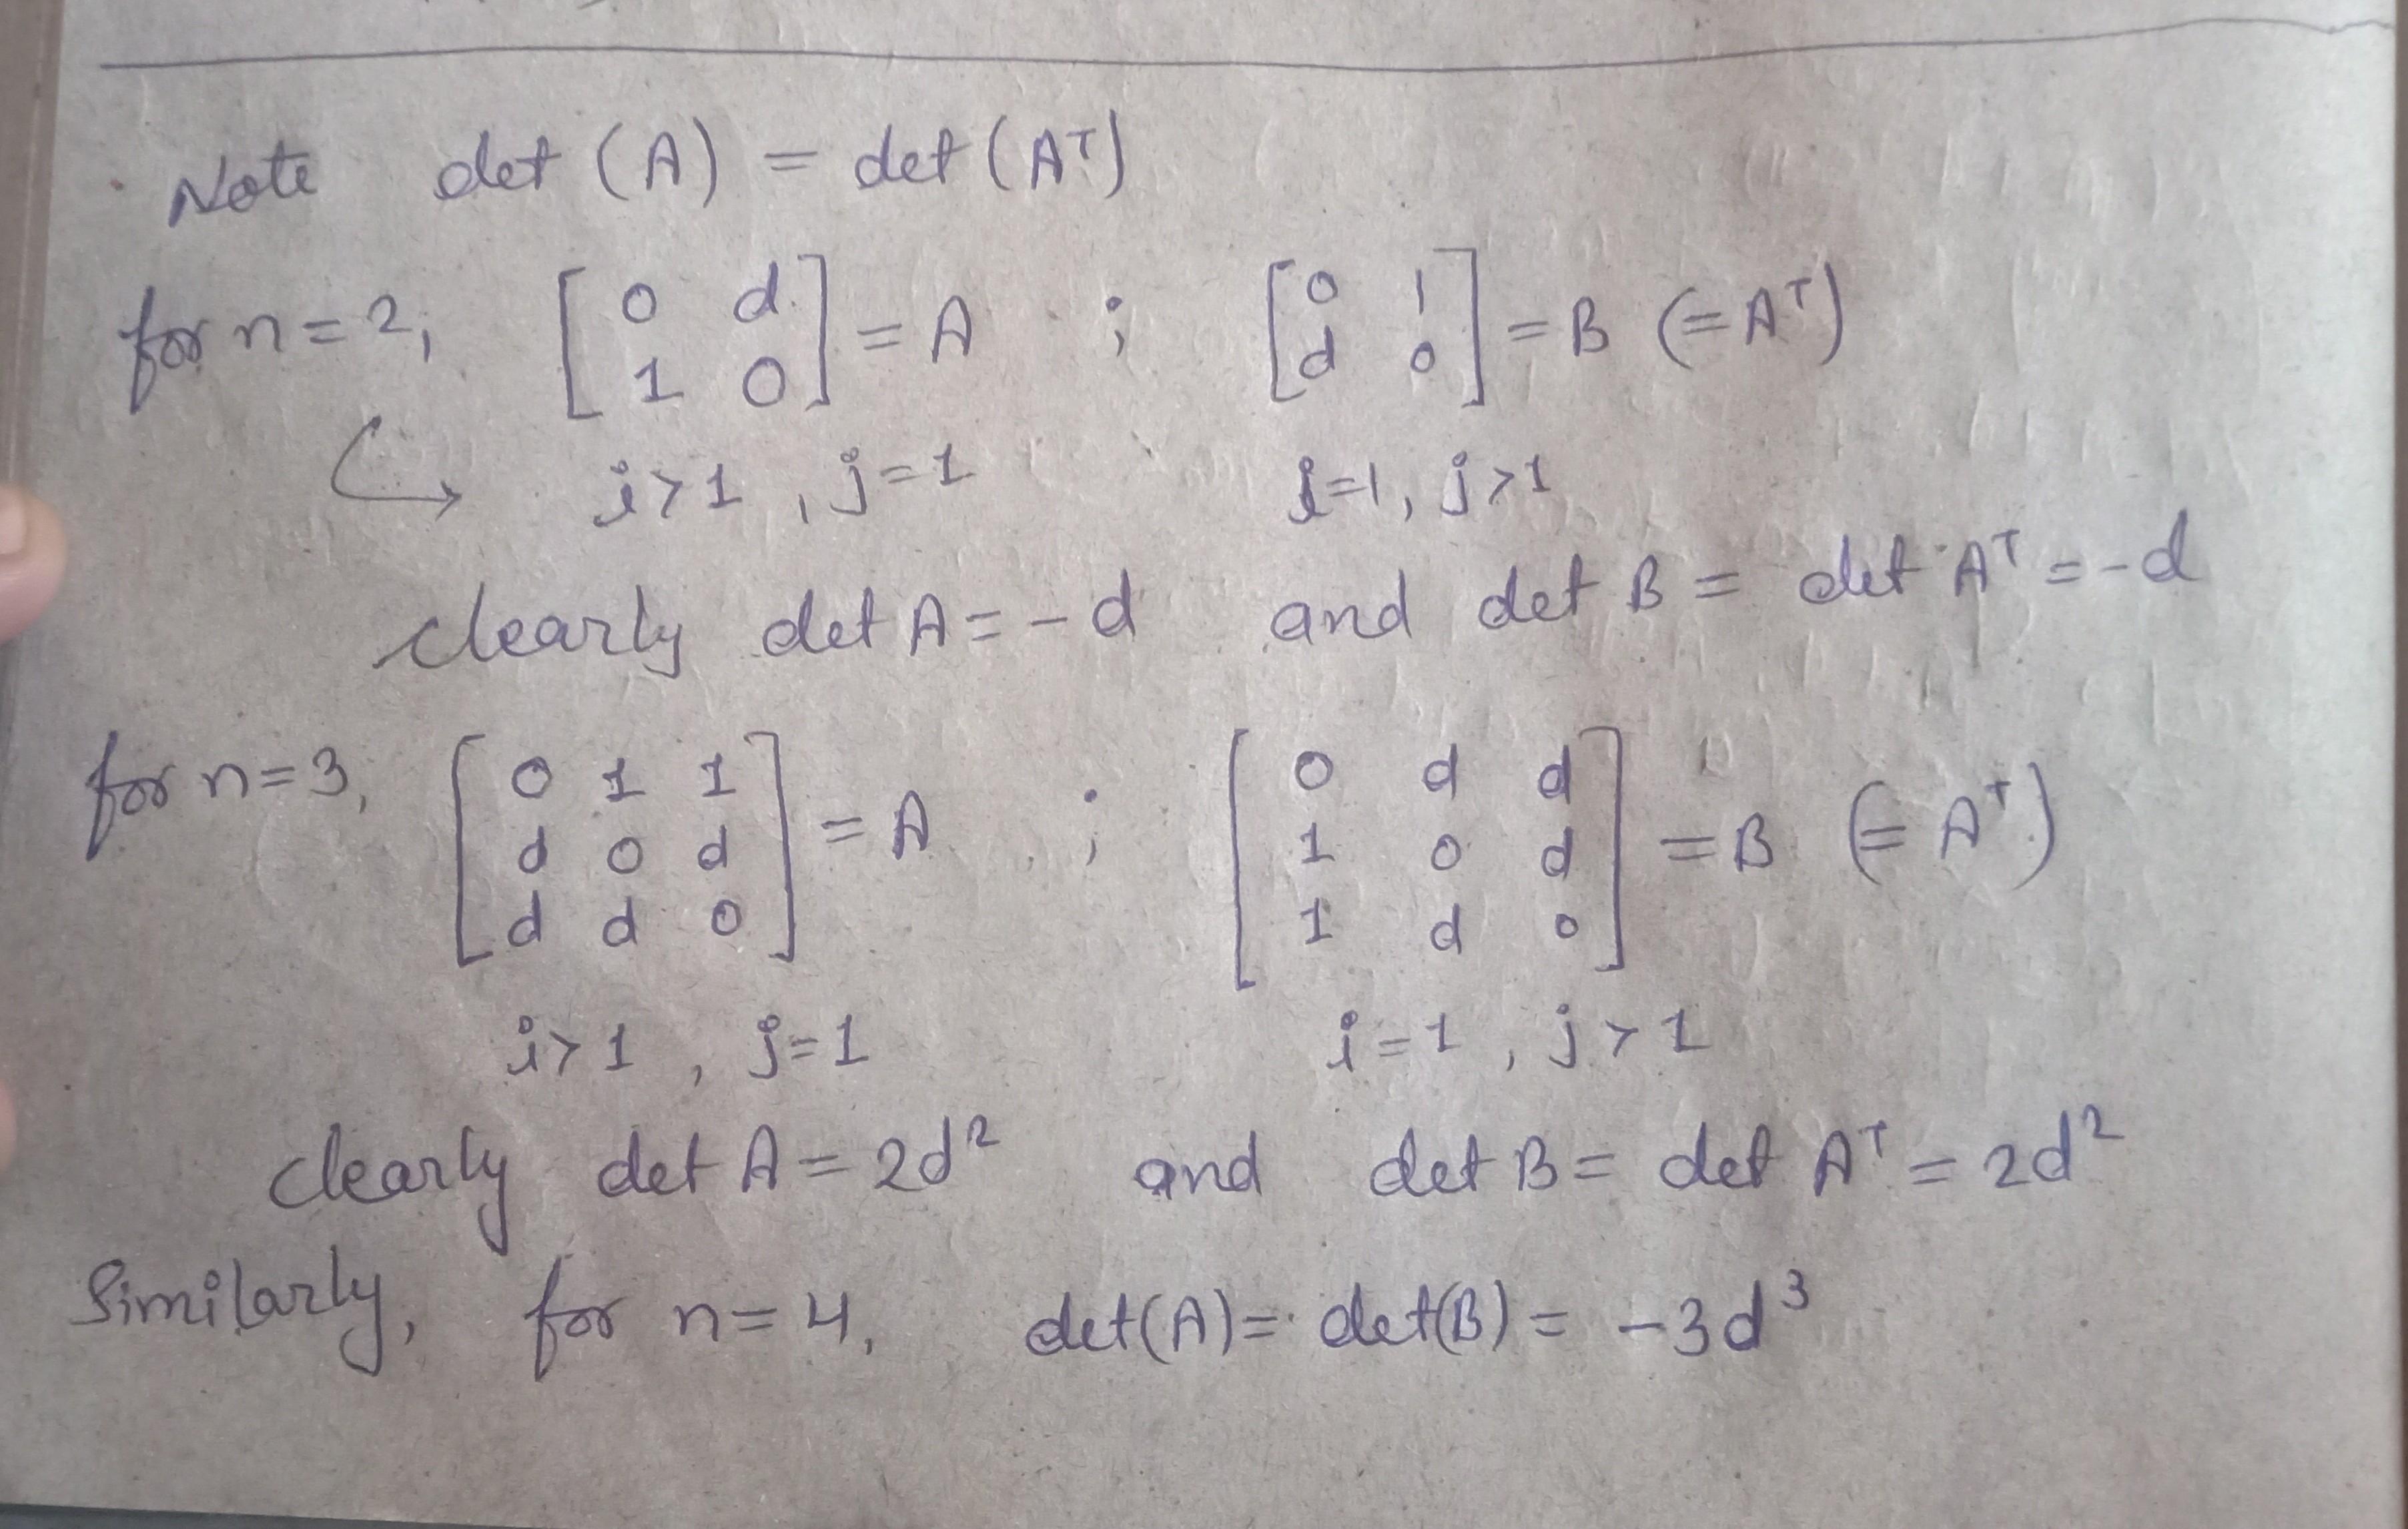 Note det (A) = det (Aᵀ)
for n = 2, [0 d; 1 0] = A ; [0 1; d 0] = B (= Aᵀ)
↪ i > 1 , j = 1 i = 1, j > 1
clearly det A = - d and det B = det Aᵀ = - d
for n = 3, [0 1 1; d 0 d; d d 0] = A ; [0 d d; 1 0 d; 1 d 0] = B (= Aᵀ)
i > 1 , j = 1 i = 1 , j > 1
clearly det A = 2d² and det B = det Aᵀ = 2d²
Similarly, for n = 4, det(A) = det(B) = -3d³